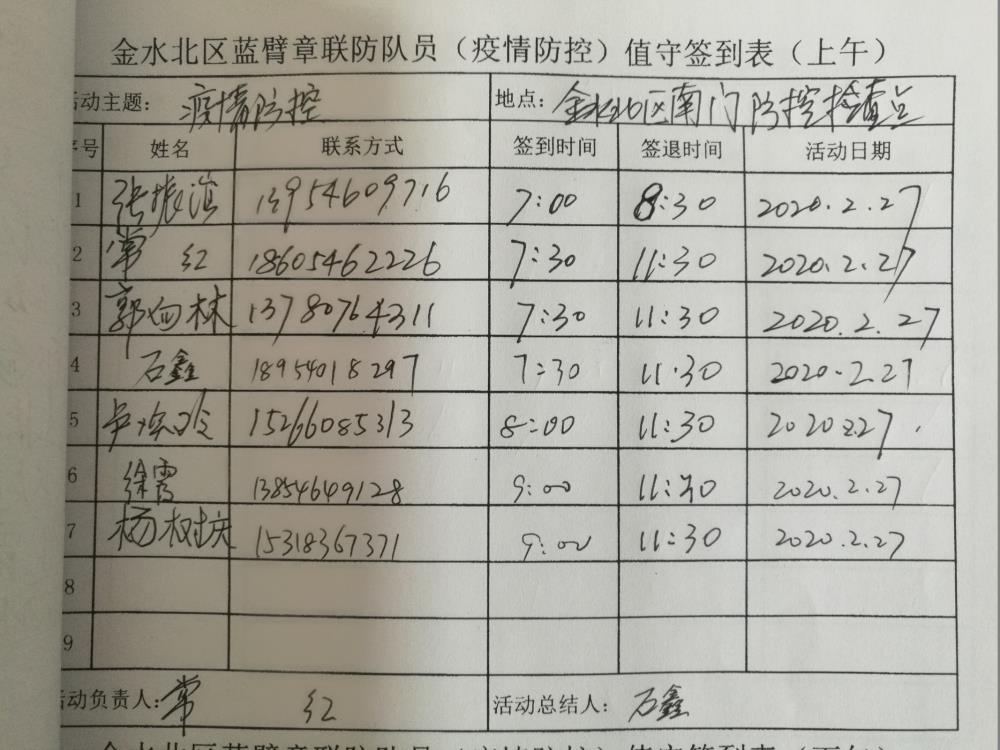 金水北区蓝臂章联防队员（疫情防控）值守签到表（上午）
活动主题： 疫情防控 地点： 金水北区南门防控检查点
序号 姓名 联系方式 签到时间 签退时间 活动日期
1 张振滨 13954609716 7:00 8:30 2020.2.27
2 常红 18605462226 7:30 11:30 2020.2.27
3 郭向林 13780764311 7:30 11:30 2020.2.27
4 石鑫 18954018297 7:30 11:30 2020.2.27
5 15266085313 8:00 11:30 2020.2.27
6 徐霞 13854649128 9:00 11:30 2020.2.27
7 杨树庆 15318367371 9:00 11:30 2020.2.27
8
9
活动负责人： 常红 活动总结人： 石鑫
金水北区蓝臂章联防队员（疫情防控）值守签到表（下午）